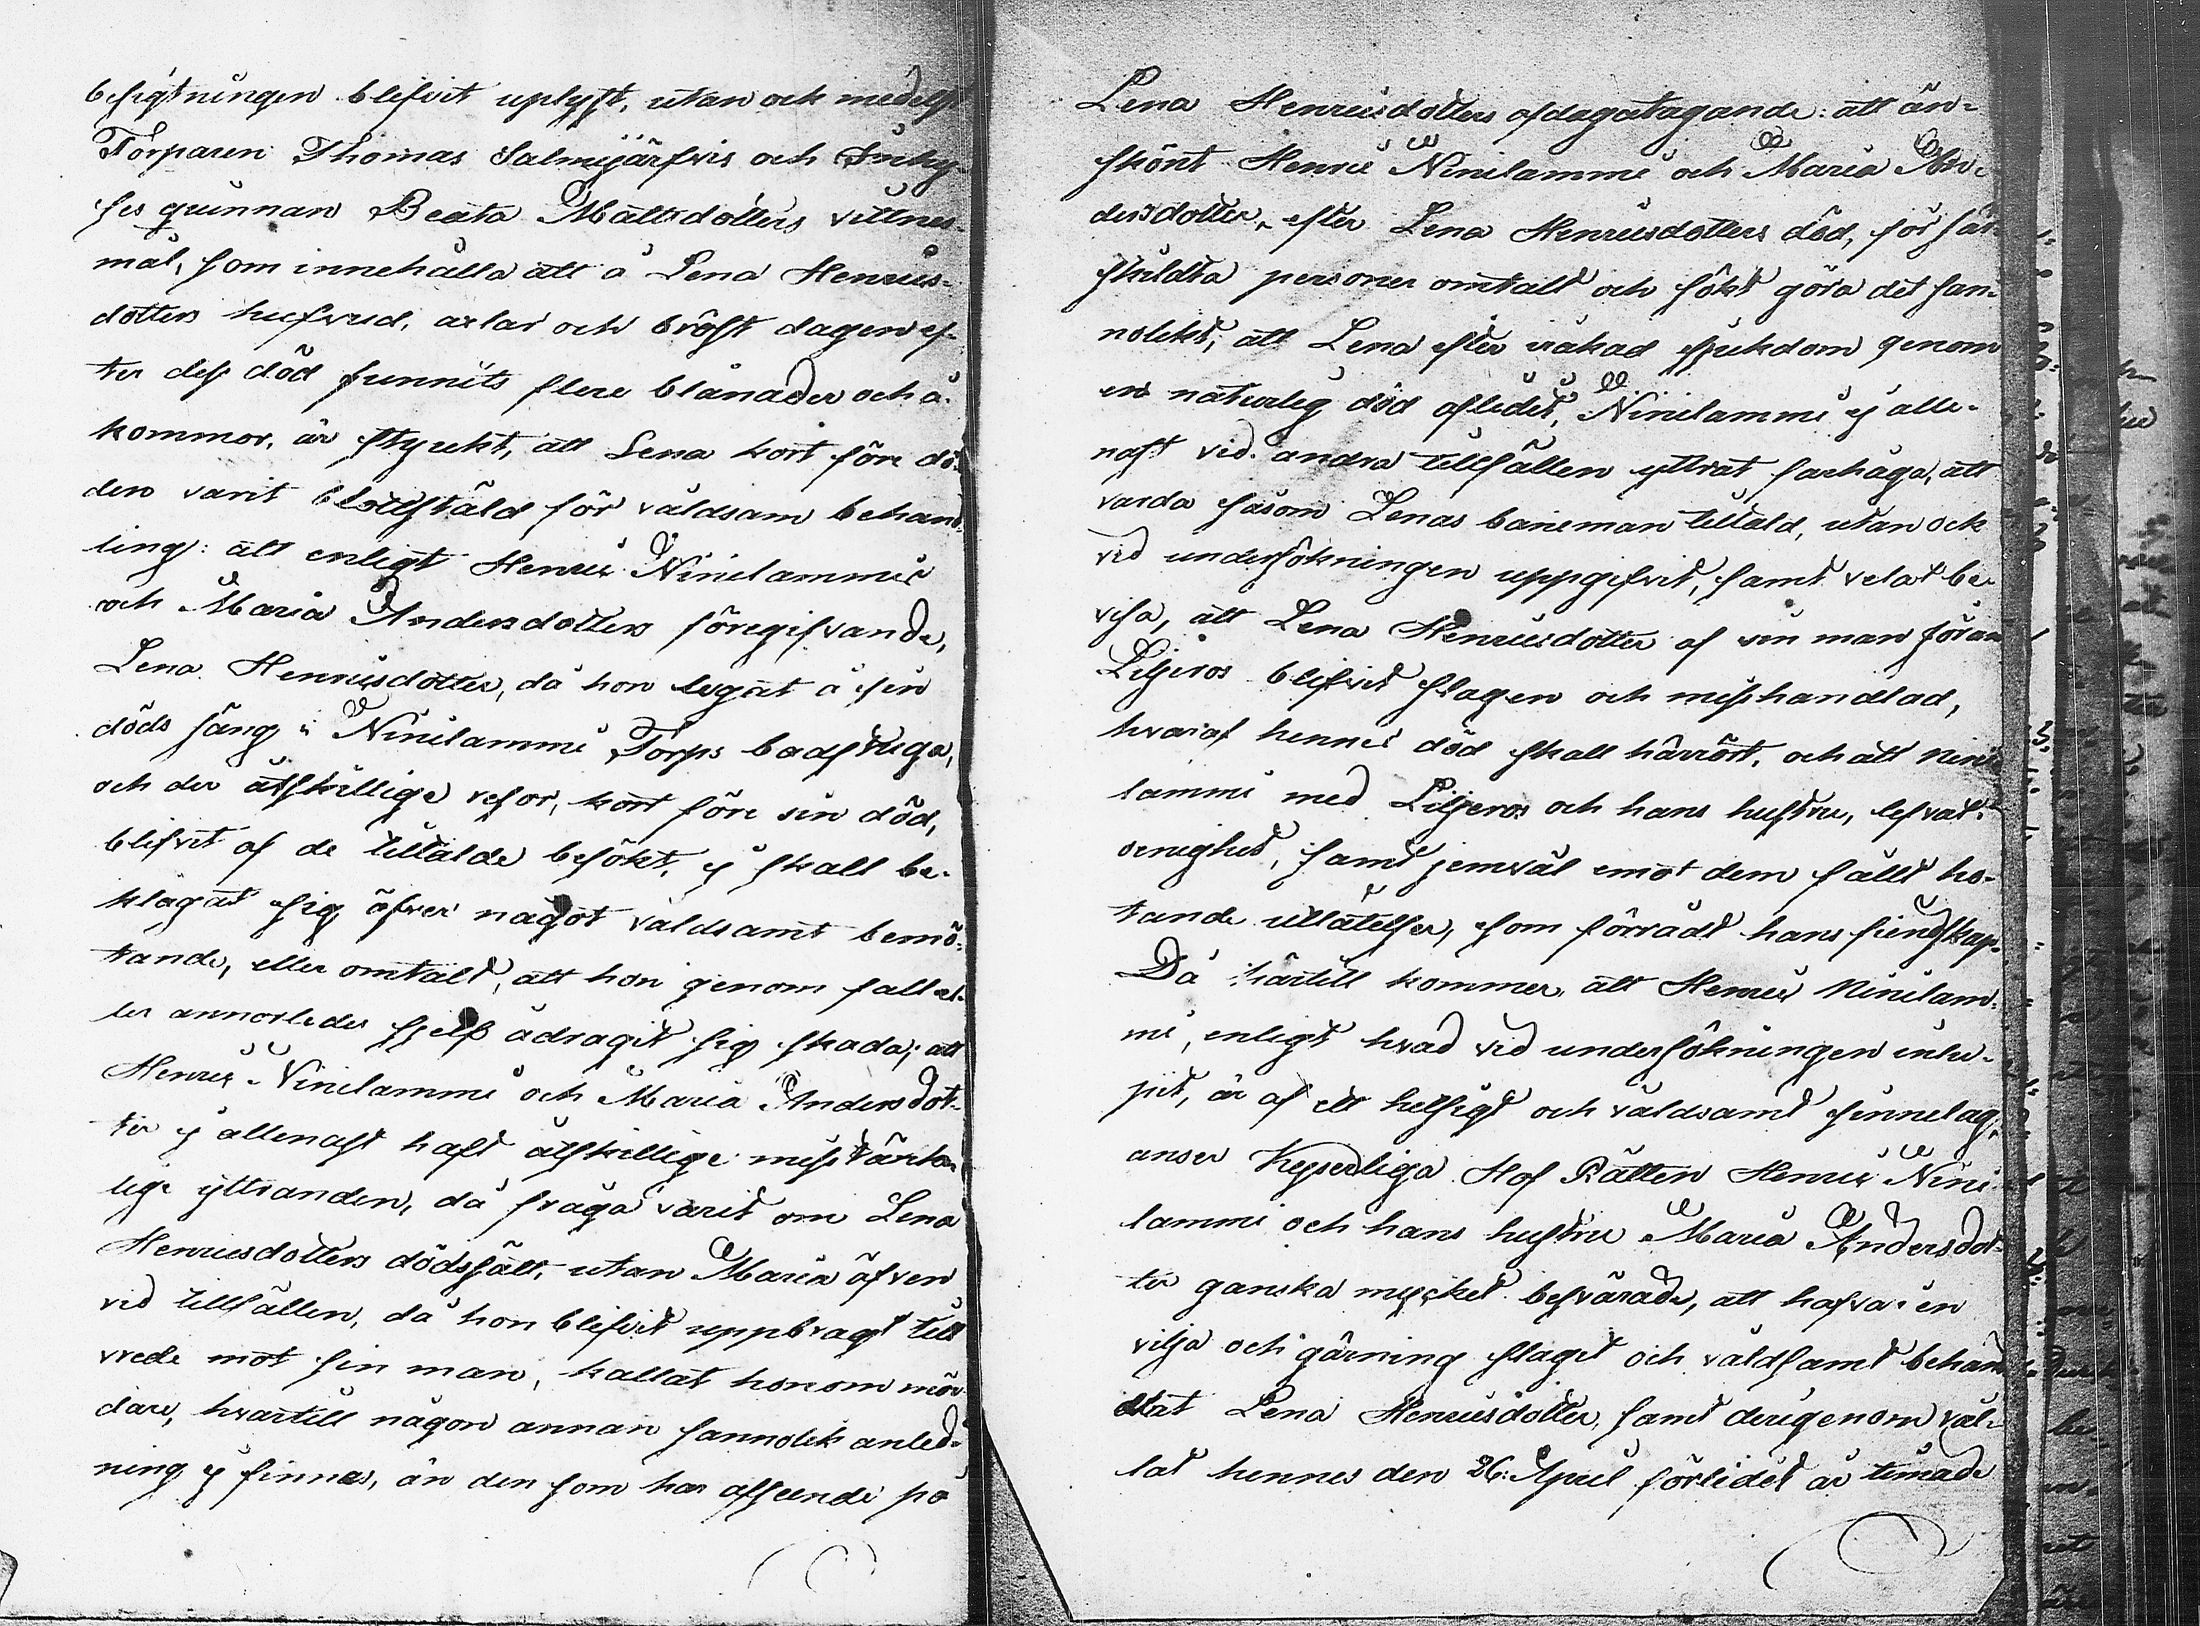 besigtningen blifvit uplyst, utan ock medelst
Torparen Thomas Salmijärfvis och Inhy-
ses quinnan Beata Mattsdotters vittnes-
mål, som innehålla att å Lena Henrics-
dotters hufvud, axlar och bröst dagen ef-
ter dess död funnits flere blånader och å-
kommor, är styrckt, att Lena kort före dö-
den varit blottstäld för våldsam behand-
ling: att enligt Henric Ninilammis
och Maria Andersdotters föregifvande,
Lena Henricsdotter, då hon legat å sin
döds säng i Ninilammi Torps badstuga,
och der åtskillige resor, kort före sin död,
blifvit af de tilltalde besökt, ej skall be-
klagat sig öfver något våldsamt bemö-
tande, eller omtalt, att hon genom fall el-
ler annorledes sjelf ådragit sig skada; att
Henric Ninilammi och Maria Andersdot-
ter ej allenast haft åtskillige misstänke-
lige yttranden, då fråga varit om Lena
Henricsdotters dödssätt, utan Maria äfven
vid tillfällen, då hon blifvit uppbragt till
vrede mot sin man, kallat honom mör-
dare, hvartill någon annan sannolik anled-
ning ej finnes, än den som har afseende på
Lena Henricsdotters afdagatagande: att än-
skönt Henric Ninilammi och Maria An-
dersdotter, efter Lena Henricsdotters död, för sär-
skildta personer omtalt och sökt göra det san-
nolikt, att Lena efter iråkad sjukdom genom
en naturlig död aflidit, Ninilammi ej alle-
nast vid andra tillfällen yttrat farhåga, att
varda såsom Lenas baneman tilltald, utan ock
vid undersökningen uppgifvit, samt velat be-
visa, att Lena Henricsdotter af sin man Jöran
Liljeros blifvit slagen och misshandlad,
hvaraf hennes död skall härrört, och att Nini-
lammi med Liljeros och hans hustru, lefvat i
oenighet, samt jemväl emot dem fällt ho-
tande utlåtelser, som förrådt hans fiendskap.
Då härtill kommer, att Henric Ninilam-
mi, enligt hvad vid undersökningen inlu-
pit, är af ett helsigt och våldsamt sinnelag,
anser Keyserliga Hof Rätten Henric Nini-
lammi och hans hustru Maria Andersdot-
ter ganska mycket besvärade, att hafva i en
vilja och gärning slagit och våldsamt behan-
dlat Lena Henricsdotter, samt derigenom vål-
lat hennes den 26. April förledit år timade